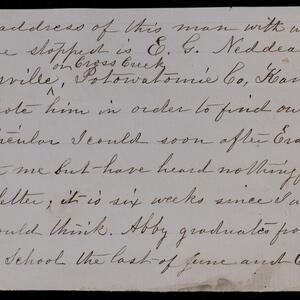 address of this man with w
he stopped is E. G. Neddea
or Cross Creek
ville, Potowatomie Co, Kan
ote him in order to find ou
icular I could soon after Era
t me but have heard nothing
letter, it is six weeks since I w
ould think. Abby graduates fro
School the last of June and